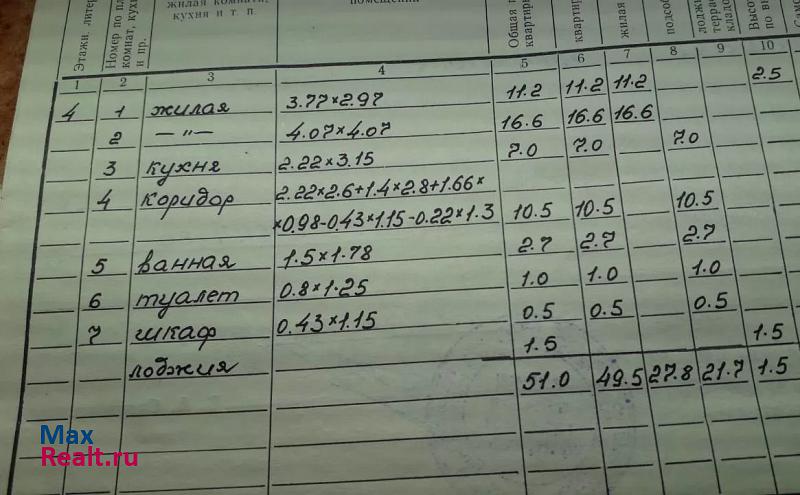 Этажн. литер
Номер по пл
комнат, кух
и пр.
жилая комната,
кухня и т. п.
помещений
Общая п
квартир
квартир
жилая
подсоб
лоджи
террас
кладо
Высот
по вн
1 2 3 4 5 6 7 8 9 10
4 1 жилая 3.77×2.97 11.2 11.2 11.2 2.5
2 —"— 4.07×4.07 16.6 16.6 16.6
3 кухня 2.22×3.15 7.0 7.0 7.0
4 коридор 2.22×2.6+1.4×2.8+1.66×
×0.98-0.43×1.15-0.22×1.3 10.5 10.5 10.5
5 ванная 1.5×1.78 2.7 2.7 2.7
6 туалет 0.8×1.25 1.0 1.0 1.0
7 шкаф 0.43×1.15 0.5 0.5 0.5
лоджия 1.5 1.5
51.0 49.5 27.8 21.7 1.5
Max
Realt.ru